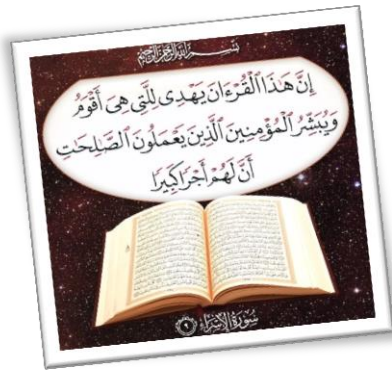 بِسْمِ ٱللَّهِ ٱلرَّحْمَٰنِ ٱلرَّحِيمِ
إِنَّ هَٰذَا ٱلْقُرْءَانَ يَهْدِى لِلَّتِى هِىَ أَقْوَمُ
وَيُبَشِّرُ ٱلْمُؤْمِنِينَ ٱلَّذِينَ يَعْمَلُونَ ٱلصَّٰلِحَٰتِ
أَنَّ لَهُمْ أَجْرًا كَبِيرًا
سُورَةُ الإِسْرَاء ٩